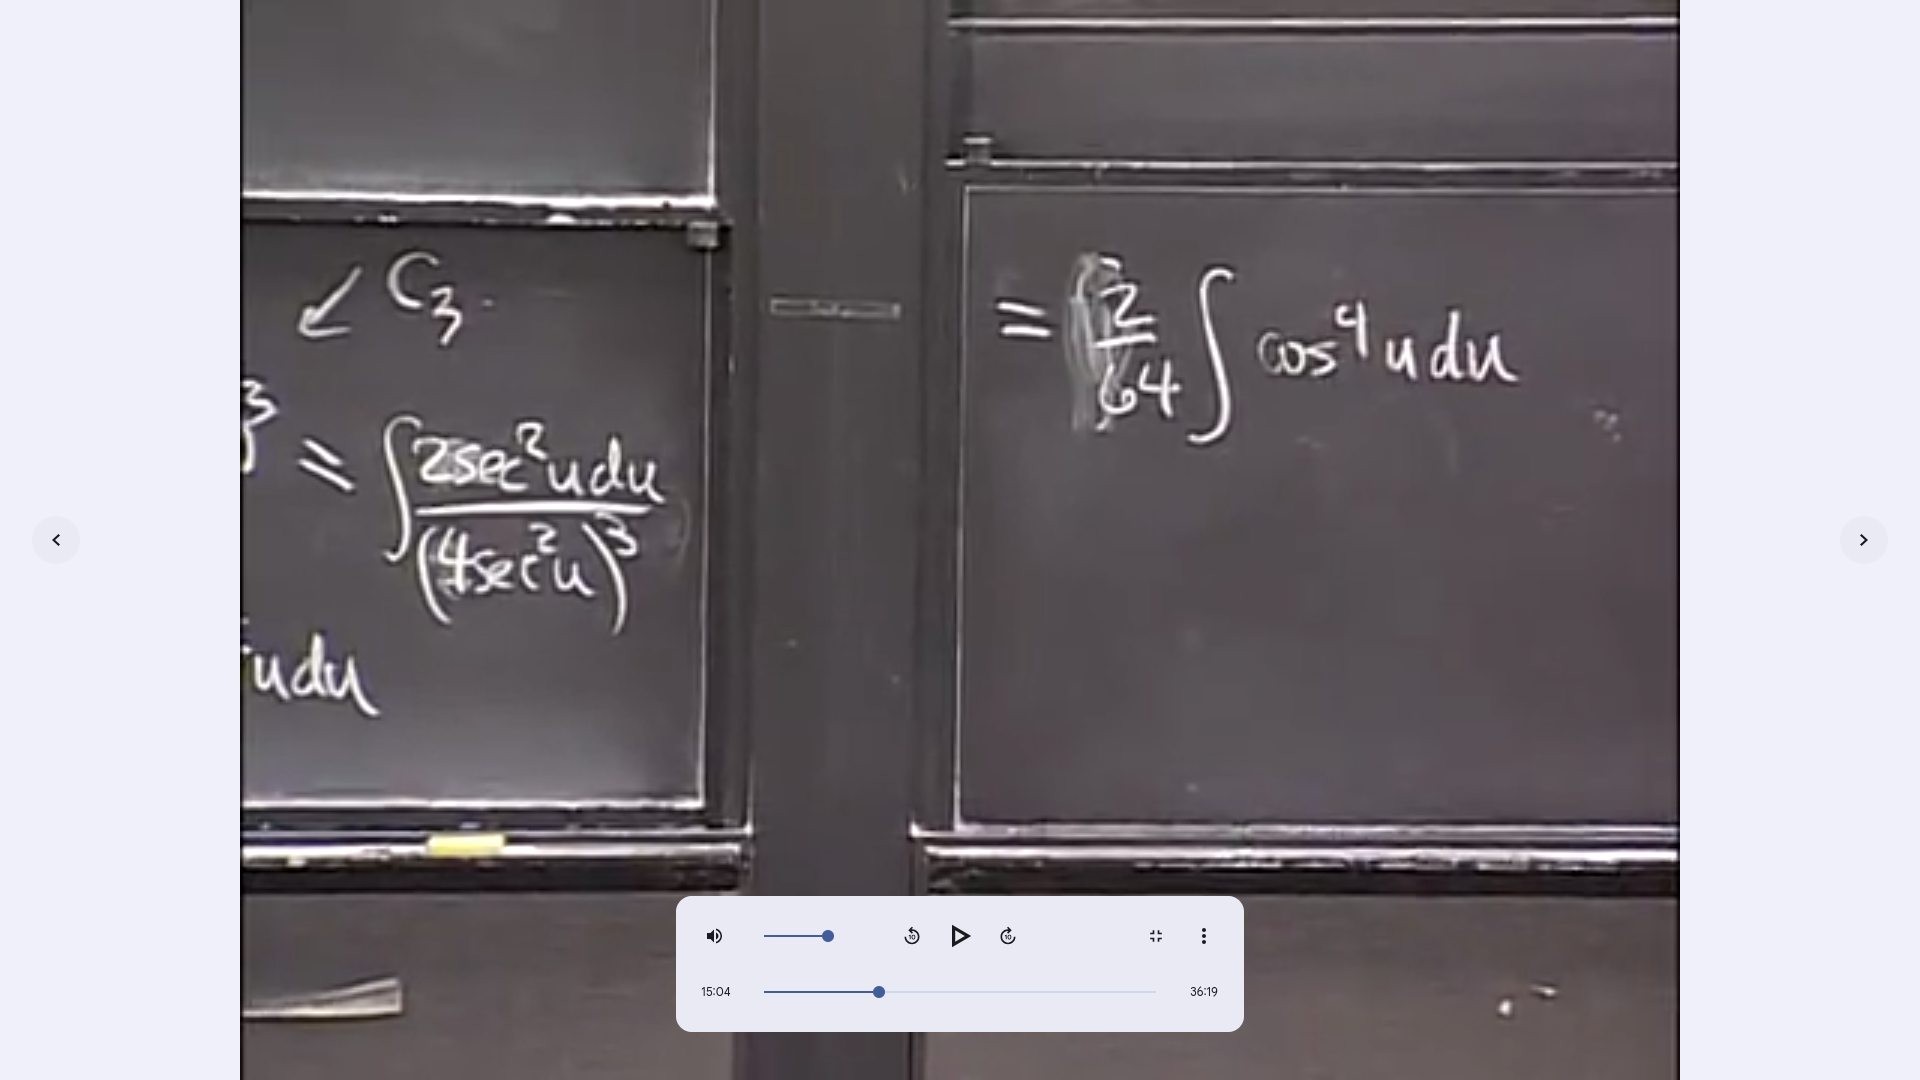 ↙ C₃
3 = ∫ 2sec²u du / (4sec²u)³
u du
= 2/64 ∫ cos⁴ u du
15:04
36:19